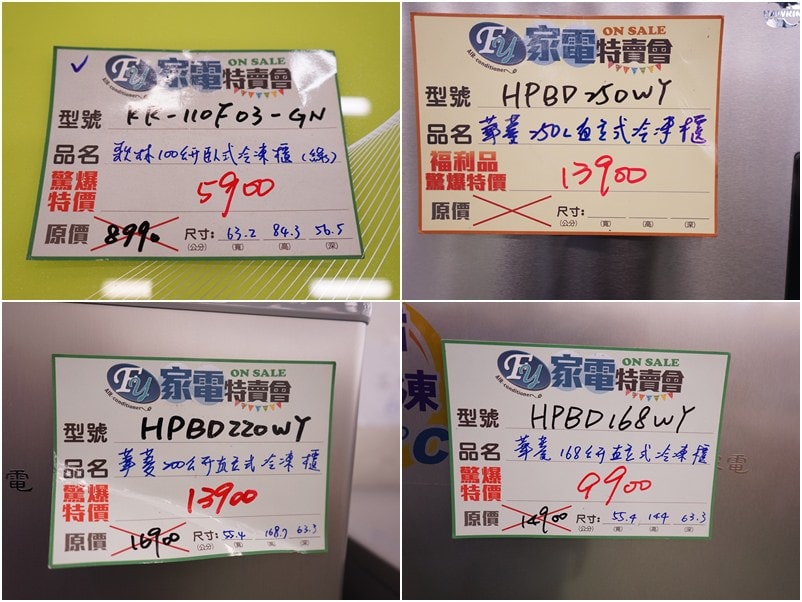 FY 家電特賣會 ON SALE
AIR-conditioner
型號 KR-110F03-GN
品名 歌林100公升臥式冷凍櫃(綠)
驚爆特價 5900
原價 8990 尺寸:(公分) 63.2(寬) 84.3(高) 56.5(深)
FY 家電特賣會 ON SALE
AIR-conditioner
型號 HPBD250WY
品名 華菱250L直立式冷凍櫃
福利品
驚爆特價 13900
原價 尺寸:(公分) (寬) (高) (深)
FY 家電特賣會 ON SALE
AIR-conditioner
型號 HPBD220WY
品名 華菱200公升直立式冷凍櫃
驚爆特價 13900
原價 16900 尺寸:(公分) 55.4(寬) 168.7(高) 63.3(深)
電
FY 家電特賣會 ON SALE
AIR-conditioner
型號 HPBD168WY
品名 華菱168公升直立式冷凍櫃
驚爆特價 9900
原價 14900 尺寸:(公分) 55.4(寬) 144(高) 63.3(深)
凍
°C
電